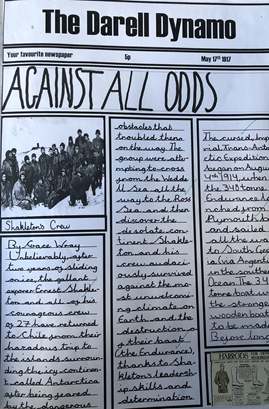 The Darell Dynamo
Your favourite newspaper
5p
May 17th 1917
AGAINST ALL ODDS
Shakleton's Crew
By Grace Wray
Unbelievably, after
two years of sliding
on ice, the gallent
explorer Ernest Shakle-
ton and all of his
courageous crew
of 27 have returned
to Chile from their
hazardous trip to
the islands surroun-
ding the icy continen-
t called Antarctica
after being seared
by the dangerous
obstacles that
troubled them
on the way. The
group were atte-
mpting to cross
from the Wedde-
ll Sea all the
way to the Ross
Sea and then
discover the
desolate con-
tinent. Shakle-
ton and his
crew audaci-
ously survived
against the mo-
st unwelcomi-
ng climate on
Earth and the
destruction o-
f their boat
(the Endurance),
thanks to Sha-
kleton's leadersh-
ip skills and
determination
The cursed Imp
rial Trans-Anta
ctic Expedition
began on August
4th 1914, when
the 348 tonne
Endurance la
nched from
Plymouth b
and sailed
all the wa
to South Ge
ia (via Argenti
in the southe
Ocean. The 34
tonne boat wa
the stronges
wooden boat
to be made
Before long
HARRODS